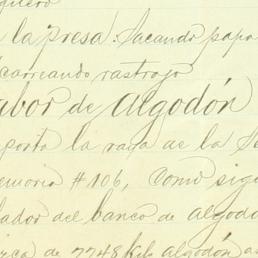 quero
la presa: Sacando papa
Acarreando rastrojo
Labor de Algodón
porta la raya de la Se
emoria #106, como sigu
lador del banco de algodó
rica de 7748 Kilo algodón as